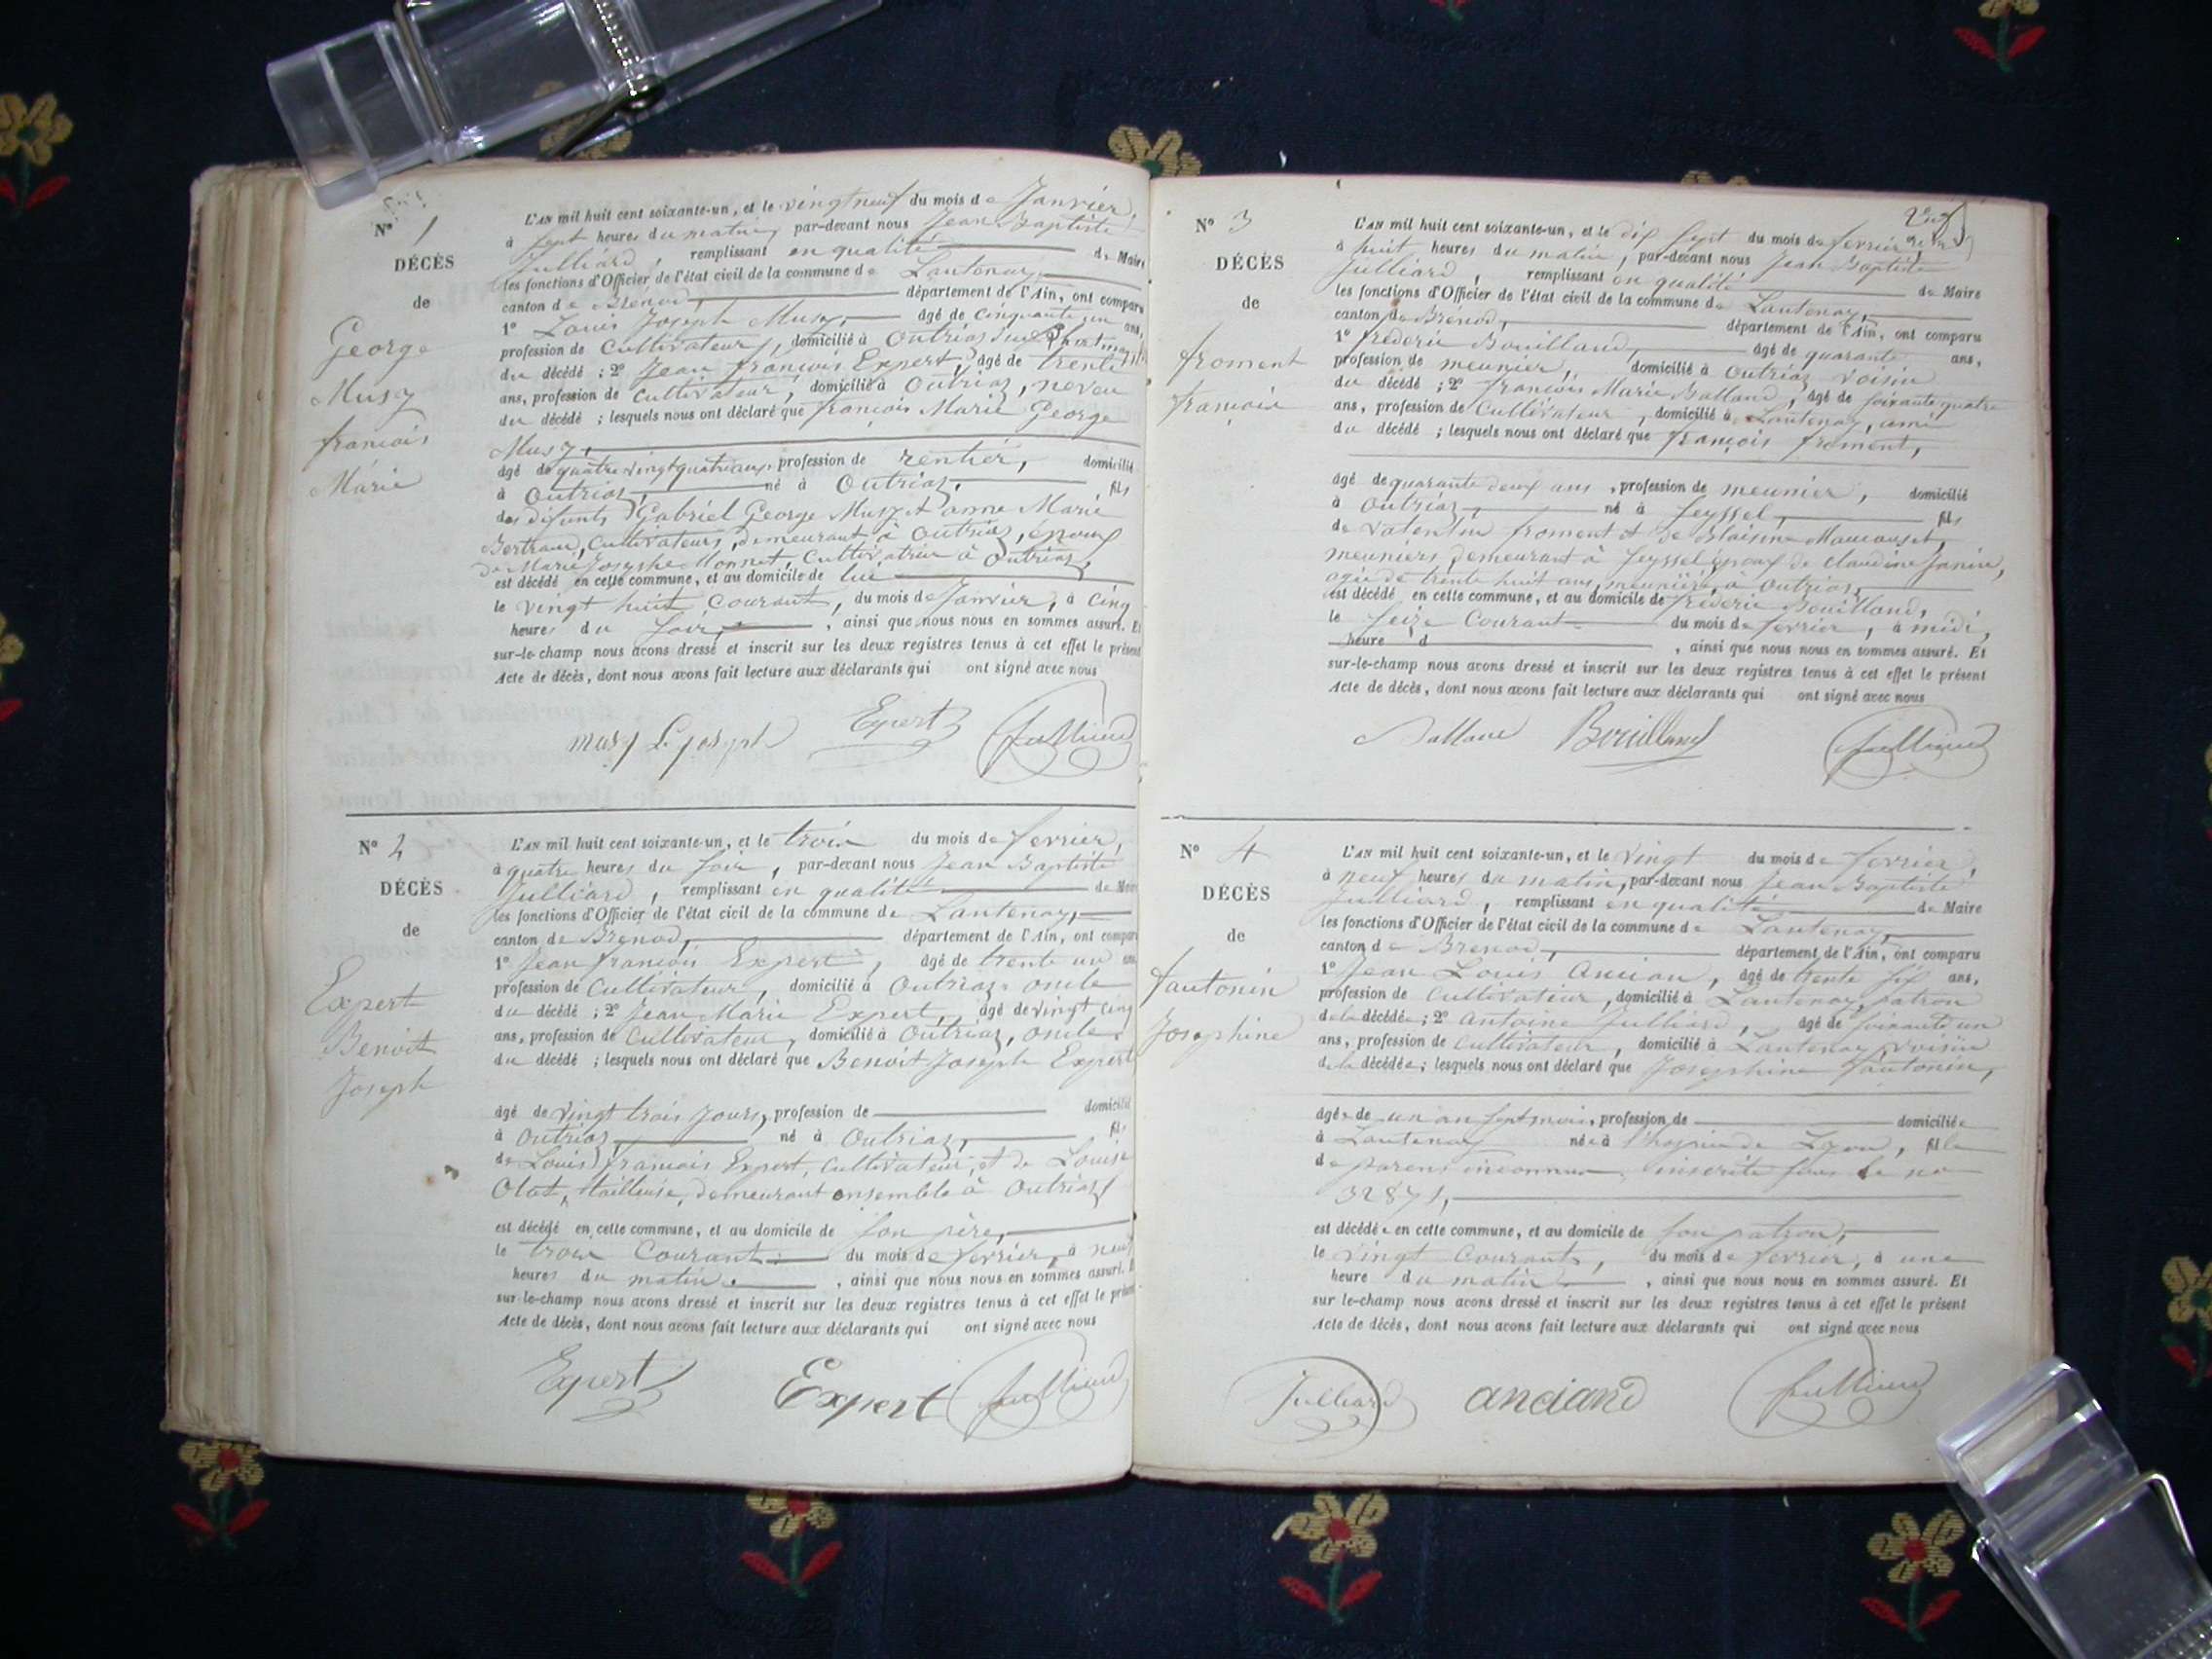 N° 1
DÉCÈS
de
George
Musy
françois
Marie
L'AN mil huit cent soixante-un, et le vingt neuf du mois de Janvier,
à sept heures du matin, par-devant nous Jean Baptiste
Julliard, remplissant en qualité de Maire
les fonctions d'Officier de l'état civil de la commune de Lantenay,
canton de Brénod, département de l'Ain, ont comparu
1° Louis Joseph Musy, âgé de cinquante un ans,
profession de Cultivateur, domicilié à Outriaz
du décédé ; 2° Jean françois Expert, âgé de trente
ans, profession de Cultivateur, domicilié à Outriaz, neveu
du décédé ; lesquels nous ont déclaré que françois Marie George
Musy,
âgé de quatre vingt quatre ans, profession de rentier, domicilié
à Outriaz, né à Outriaz, fils
des défunts Gabriel George Musy et anne Marie
Bertrand, Cultivateurs, demeurant à Outriaz, époux
de Marie Josephe Monnet, Cultivatrice à Outriaz,
est décédé en cette commune, et au domicile de lui
le vingt huit Courant, du mois de Janvier, à cinq
heures du soir, , ainsi que nous nous en sommes assuré. Et
sur-le-champ nous avons dressé et inscrit sur les deux registres tenus à cet effet le présent
Acte de décès, dont nous avons fait lecture aux déclarants qui ont signé avec nous
musy L. joseph Expert Julliard
N° 2
DÉCÈS
de
Expert
Benoit
Joseph
L'AN mil huit cent soixante-un, et le trois du mois de fevrier,
à quatre heures du soir, par-devant nous Jean Baptiste
Julliard, remplissant en qualité de Maire
les fonctions d'Officier de l'état civil de la commune de Lantenay,
canton de Brenod, département de l'Ain, ont comparu
1° Jean françois Expert, âgé de trente un ans
profession de Cultivateur, domicilié à Outriaz oncle
du décédé ; 2° Jean Marie Expert, âgé de vingt cinq
ans, profession de Cultivateur, domicilié à Outriaz, oncle
du décédé ; lesquels nous ont déclaré que Benoit Joseph Expert
âgé de vingt trois Jours, profession de domicilié
à Outriaz, né à Outriaz, fils
de Louis françois Expert, Cultivateur, et de Louise
Olat, tailleuse, demeurant ensemble à Outriaz,
est décédé en cette commune, et au domicile de son père,
le trois Courant du mois de fevrier, à neuf
heures du matin. , ainsi que nous nous en sommes assuré. E
sur le-champ nous avons dressé et inscrit sur les deux registres tenus à cet effet le présent
Acte de décès, dont nous avons fait lecture aux déclarants qui ont signé avec nous
Expert Expert Julliard
N° 3
DÉCÈS
de
froment
françois
L'AN mil huit cent soixante-un, et le dix sept du mois de fevrier,
à huit heures du matin, par-devant nous Jean Baptiste
Julliard, remplissant en qualité de Maire
les fonctions d'Officier de l'état civil de la commune de Lantenay,
canton de Brénod, département de l'Ain, ont comparu
1° frederic Bouilland, âgé de quarante ans,
profession de meunier, domicilié à Outriaz voisin
du décédé ; 2° françois Marie Balland, âgé de soixante quatre
ans, profession de Cultivateur, domicilié à Lantenay, ami
du décédé ; lesquels nous ont déclaré que françois froment,
âgé de quarante deux ans, profession de meunier, domicilié
à Outriaz, né à Seyssel, fils
de Valentin froment et de Blaisine
meuniers, demeurant à Seyssel, époux de claudine Janin,
agée de trente huit ans, meunière, à Outriaz,
est décédé en cette commune, et au domicile de frederic Bouilland,
le seize Courant du mois de fevrier, à midi,
heure d , ainsi que nous nous en sommes assuré. Et
sur-le-champ nous avons dressé et inscrit sur les deux registres tenus à cet effet le présent
Acte de décès, dont nous avons fait lecture aux déclarants qui ont signé avec nous
Balland Bouilland Julliard
N° 4
DÉCÈS
de
fantonin
Josephine
L'AN mil huit cent soixante-un, et le vingt du mois de fevrier,
à neuf heures du matin, par-devant nous Jean Baptiste
Julliard, remplissant en qualité de Maire
les fonctions d'Officier de l'état civil de la commune de Lantenay,
canton de Brenod, département de l'Ain, ont comparu
1° Jean Louis Ancian, âgé de trente six ans,
profession de Cultivateur, domicilié à Lantenay, patron
de la décédée ; 2° Antoine Julliard, âgé de soixante un
ans, profession de Cultivateur, domicilié à Lantenay, voisin
de la décédée ; lesquels nous ont déclaré que Josephine fantonin,
âgée de un an sept mois, profession de domiciliée
à Lantenay née à l'hospice de Lyon, fille
de parens inconnus, inscrite sous le no
32871,
est décédée en cette commune, et au domicile de son patron,
le vingt Courant, du mois de fevrier, à une
heure du matin , ainsi que nous nous en sommes assuré. Et
sur le-champ nous avons dressé et inscrit sur les deux registres tenus à cet effet le présent
Acte de décès, dont nous avons fait lecture aux déclarants qui ont signé avec nous
Julliard anciand Julliard